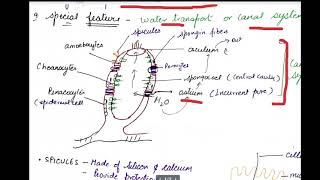 9. special feature - water transport or canal system
spicules
spongin fibers
out
amoebocytes
osculum
Choanocytes
Porocytes
spongocoel (central cavity)
Pinacocytes
(epidermal cell)
ostium (incurrent pore)
H₂O
• SPICULES - Made of Silicon & calcium
Provide protection